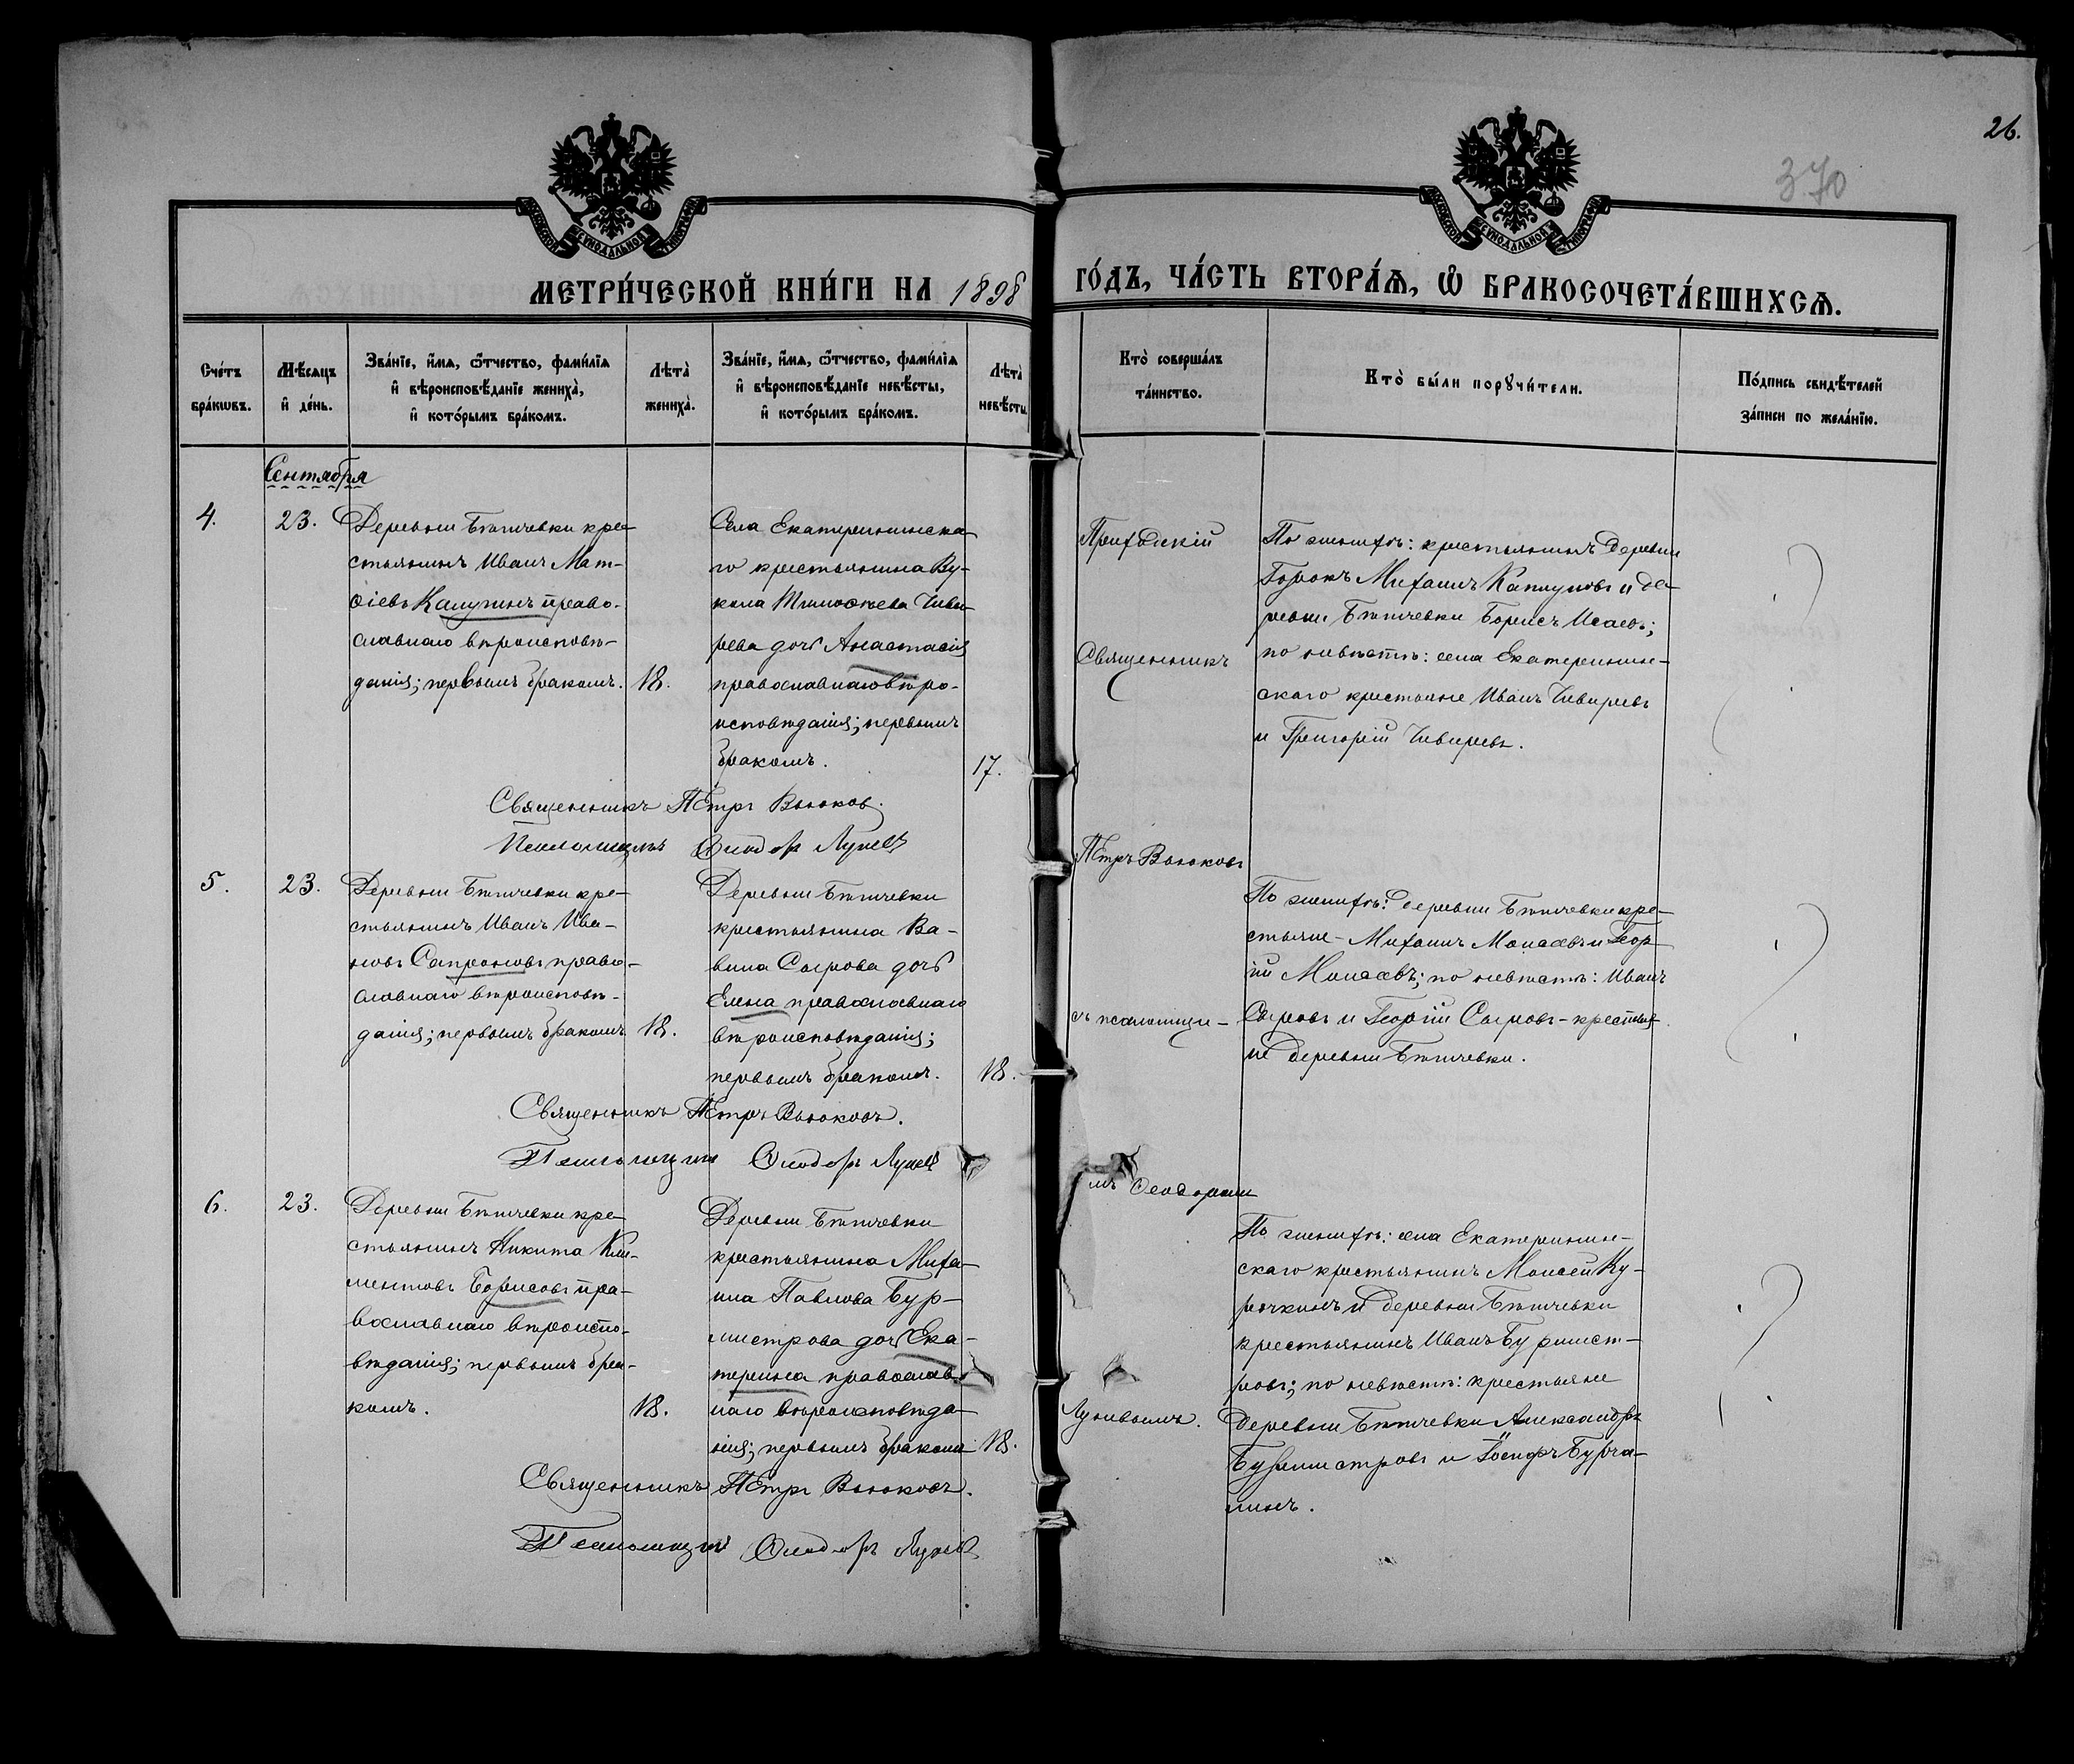 26.
370
МЕТРИ́ЧЕСКОЙ КНИ́ГИ НА 1898 ГО́ДЪ, ЧА́СТЬ ВТОРА́Ѧ, Ѡ҆ БРАКОСОЧЕТА́ВШИХСѦ.
Сче́тъ
бра́кѡвъ.
Мѣ́сѧцъ
и҆ де́нь.
Зва́нїе, и҆́мѧ, ѻ҆́тчество, фами́лїѧ
и҆ вѣроисповѣ́данїе жениха̀,
и҆ кото́рымъ бра́комъ.
Лѣта̀
жениха̀.
Зва́нїе, и҆́мѧ, ѻ҆́тчество, фами́лїѧ
и҆ вѣроисповѣ́данїе невѣ́сты,
и҆ кото́рымъ бра́комъ.
Лѣта̀
невѣ́сты.
Кто̀ соверша́лъ
та́инство.
Кто̀ бы́ли порꙋчи́тели.
По́дпись свидѣ́телей
за́писи по жела́нїю.
Сентября
4.
23.
Деревни Бѣтчевки кре-
стьянинъ Иванъ Мат-
ѳіевъ Калугинъ право-
славнаго вѣроисповѣ-
данія; первымъ бракомъ.
18.
Села Екатерининска-
го крестьянина Ву-
кола Тимоѳеева Чиви-
рева дочь Анастасія
православнаго вѣро-
исповѣданія; первымъ
бракомъ.
17.
Приходскій
Священникъ
По женихѣ: крестьянинъ деревни
Горокъ Михаилъ Каплуновъ и де-
ревни Бѣтчевки Борисъ Исаевъ;
по невѣстѣ: села Екатеринин-
скаго крестьяне Иванъ Чивиревъ
и Григорій Чивиревъ.
Священникъ Петръ Вьюковъ.
Псаломщикъ Ѳеодоръ Луневъ
5.
23.
Деревни Бѣтчевки кре-
стьянинъ Иванъ Ива-
новъ Сапроновъ право-
славнаго вѣроисповѣ-
данія; первымъ бракомъ
18.
Деревни Бѣтчевки
крестьянина Ва-
вила Сырова дочь
Елена православнаго
вѣроисповѣданія;
первымъ бракомъ.
18.
Петръ Вьюковъ
съ псаломщи-
По женихѣ: деревни Бѣтчевки кре-
стьяне - Михаилъ Моисеевъ и Геор-
гій Моисеевъ; по невѣстѣ: Иванъ
Сыровъ и Георгій Сыровъ - крестья-
не деревни Бѣтчевки.
Священникъ Петръ Вьюковъ.
Псаломщикъ Ѳеодоръ Луневъ
6.
23.
Деревни Бѣтчевки кре-
стьянинъ Никита Кли-
ментовъ Борисовъ пра-
вославнаго вѣроиспо-
вѣданія; первымъ бра-
комъ.
18.
Деревни Бѣтчевки
крестьянина Миха-
ила Павлова Бур-
мистрова дочь Ека-
терина православ-
наго вѣроисповѣда-
нія; первымъ бракомъ
18.
Ѳеодоромъ
Луневымъ.
По женихѣ: села Екатеринин-
скаго крестьянинъ Моисей Ку-
рочкинъ и деревни Бѣтчевки
крестьянинъ Иванъ Бурмист-
ровъ; по невѣстѣ: крестьяне
деревни Бѣтчевки Александръ
Бурмистровъ и Іосифъ Бурча-
линъ.
Священникъ Петръ Вьюковъ.
Псаломщикъ Ѳеодоръ Луневъ